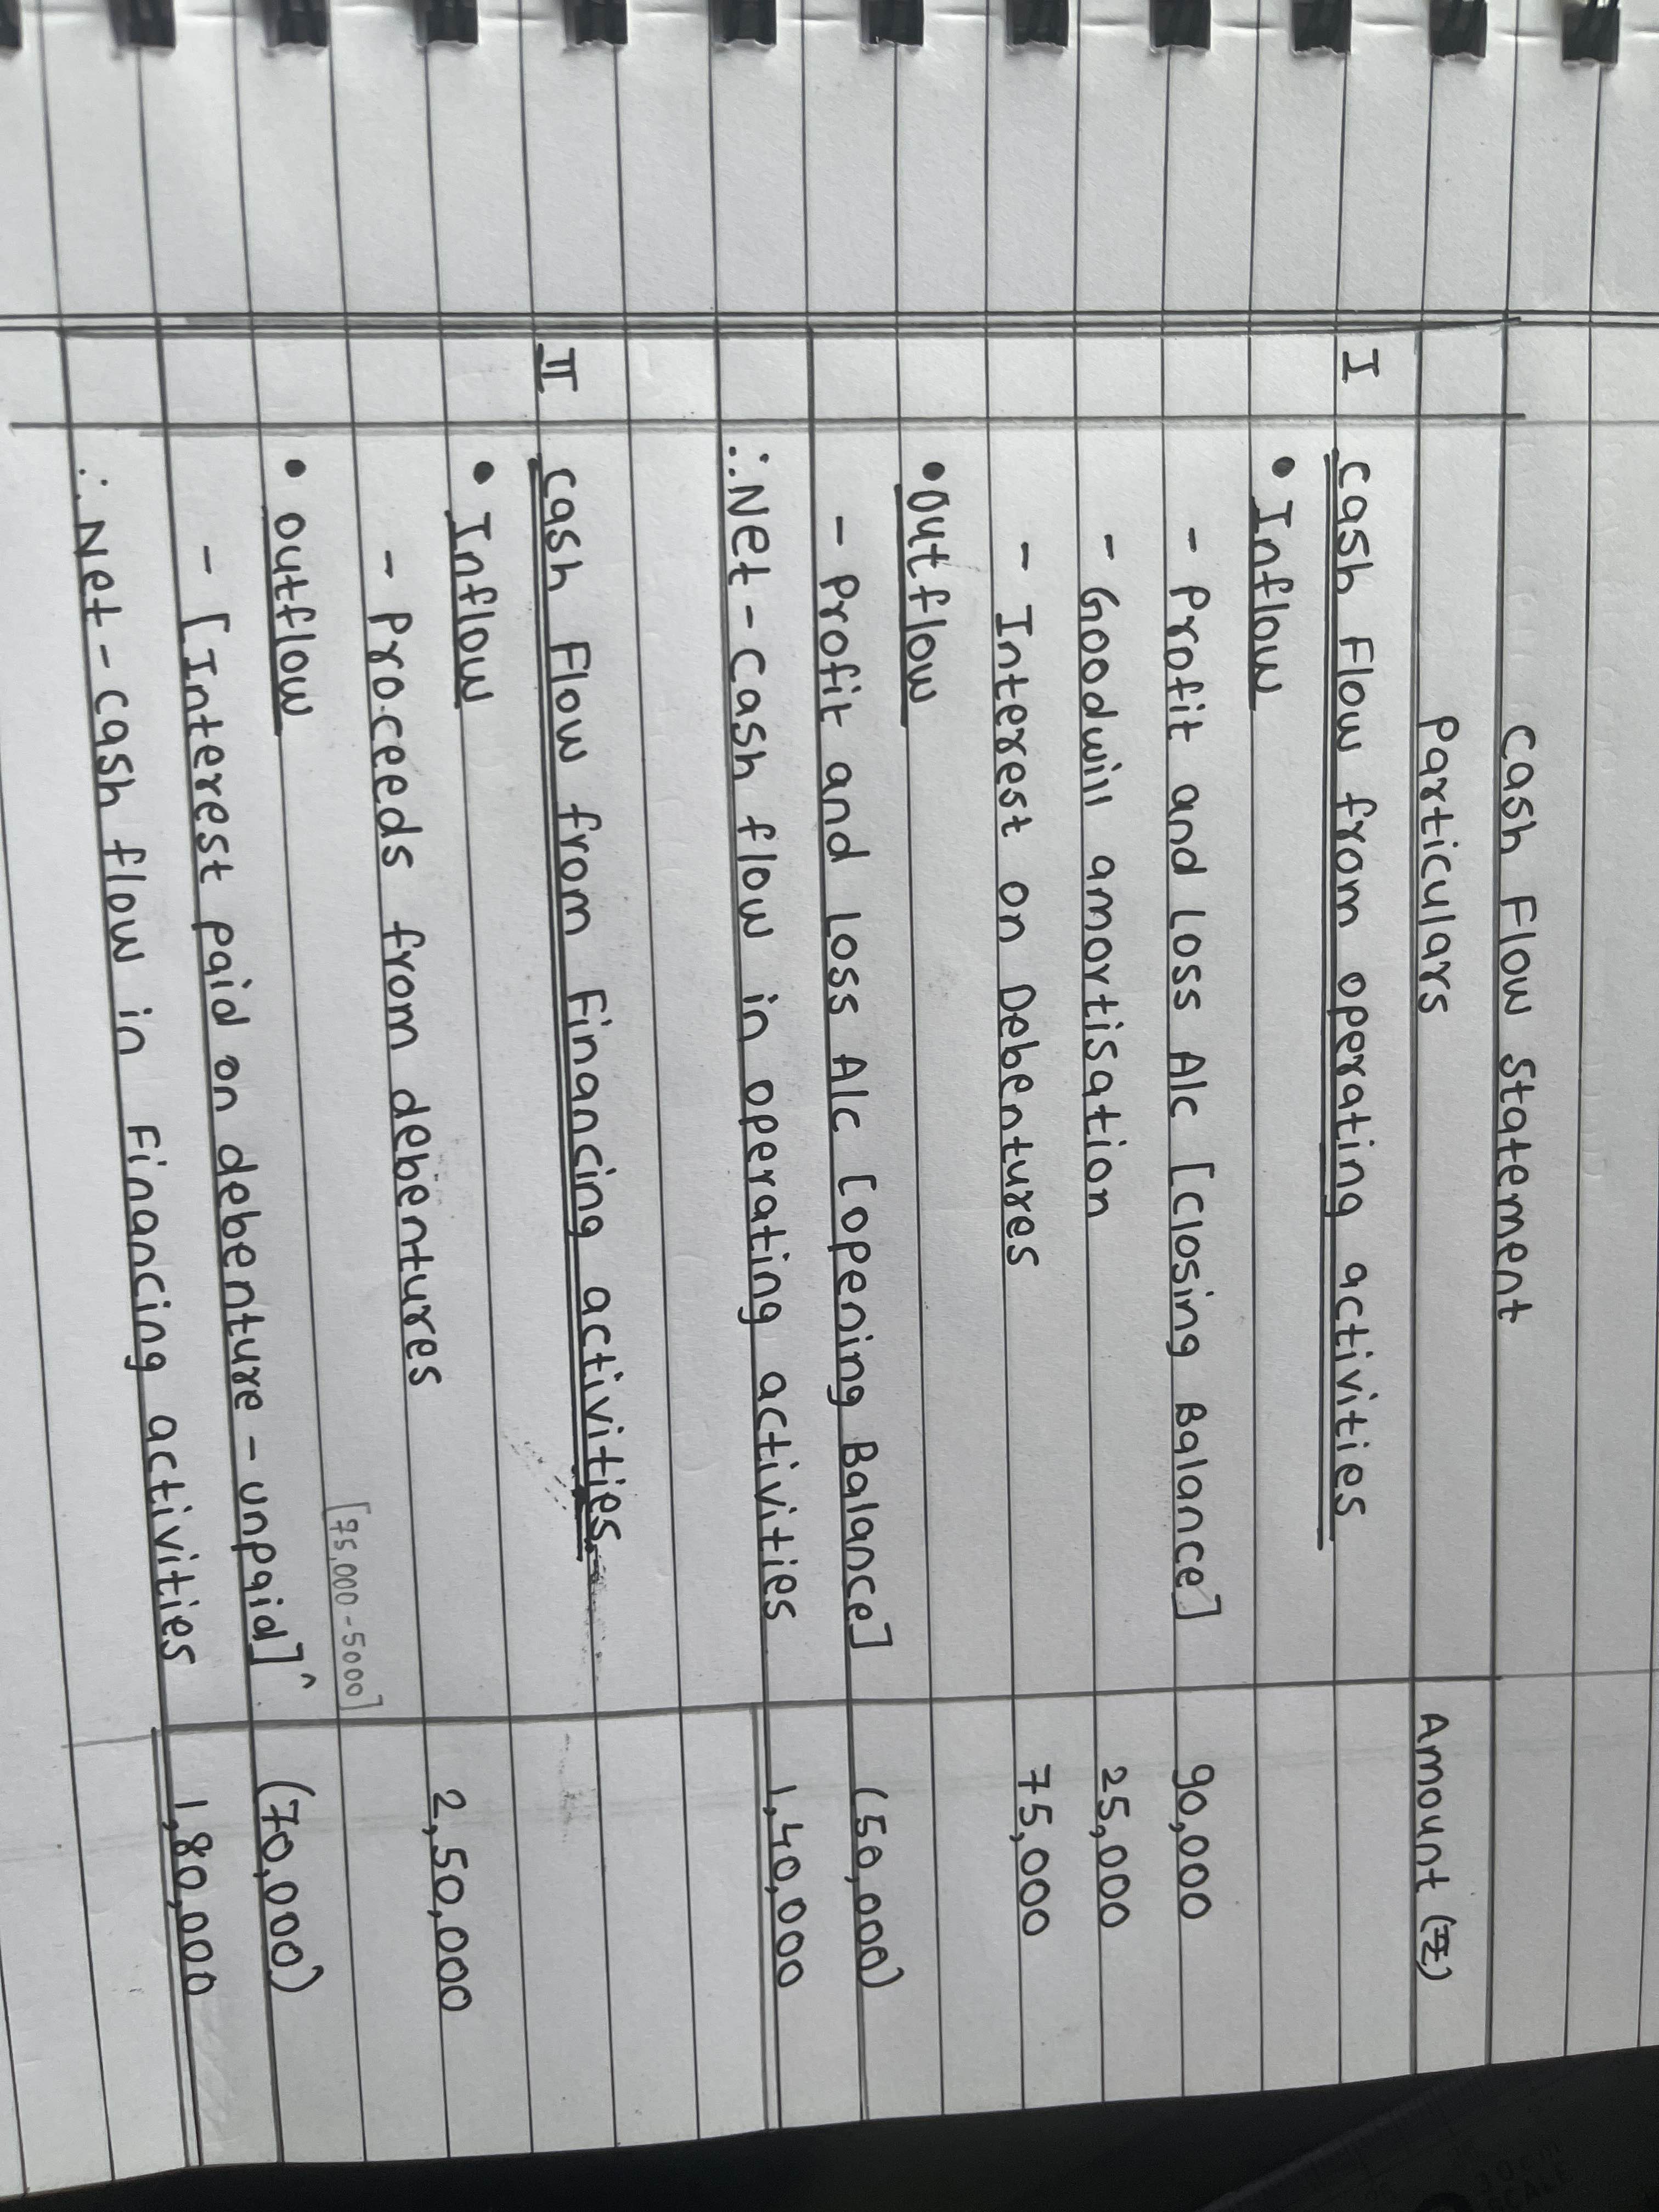 Cash Flow Statement
Particulars Amount (₹)
I Cash Flow from operating activities
• Inflow
- Profit and Loss A/c [Closing Balance] 90,000
- Goodwill amortisation 25,000
- Interest on Debentures 75,000
• Outflow
- Profit and Loss A/c [opening Balance] (50,000)
∴ Net-Cash flow in operating activities 1,40,000
II Cash Flow from Financing activities.
• Inflow
- Proceeds from debentures 2,50,000
• outflow [75,000-5000]
- [Interest paid on debenture - unpaid]^ (70,000)
∴ Net-cash flow in Financing activities 1,80,000